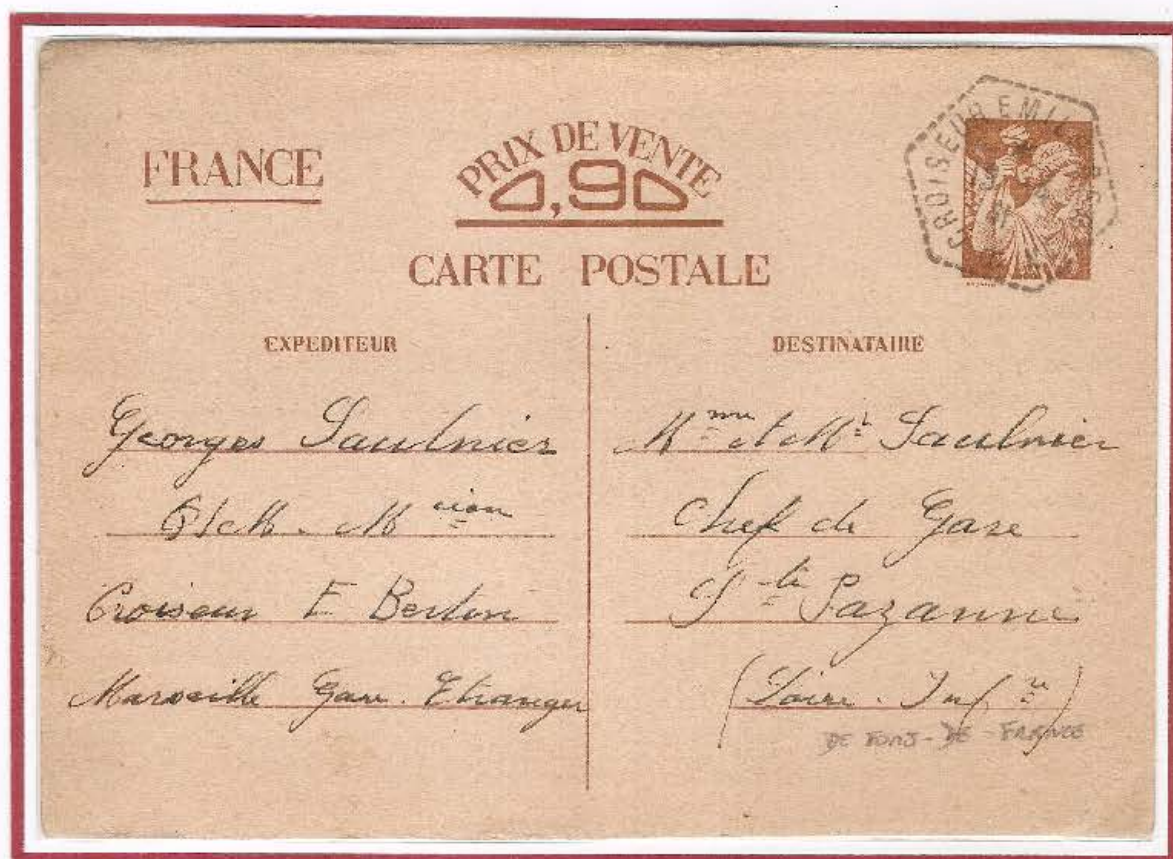 FRANCE
PRIX DE VENTE
0,90
CARTE POSTALE
CROISEUR EMILE
EXPEDITEUR
Georges Saulnier
Mcien
Croiseur E Bertin
Marseille Gare. Etranger
DESTINATAIRE
Mme et Mr Saulnier
Chef de Gare
Ste Pazanne
(Loire. Infre)
DE FORT-DE-FRANCE